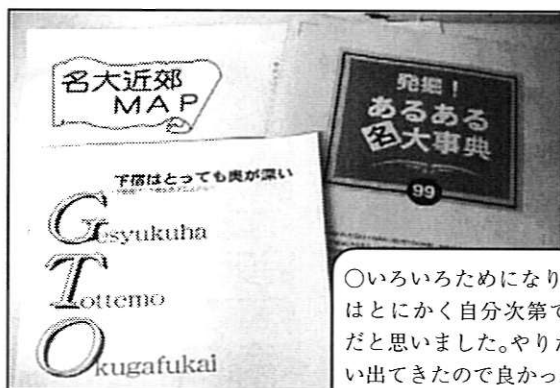 名大近郊
MAP
発掘!
あるある
名大事典
99
下宿はとっても奥が深い
Gesyukuha
Tottemo
Okugafukai
○いろいろためになり
はとにかく自分次第で
だと思いました。やりた
い出てきたので良かっ